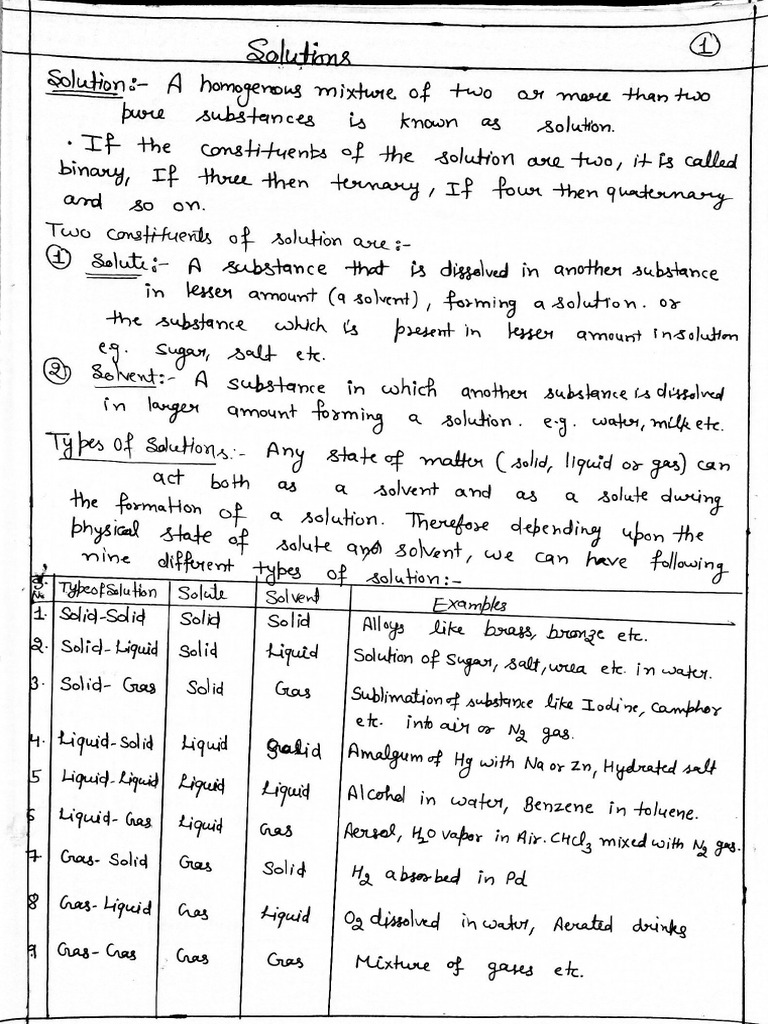 Solutions
1
Solution:- A homogenous mixture of two or more than two
pure substances is known as solution.
· If the constituents of the solution are two, it is called
binary, If three then ternary, If four then quaternary
and so on.
Two constituents of solution are:-
1 Solute:- A substance that is dissolved in another substance
in lesser amount (a solvent), forming a solution. or
the substance which is present in lesser amount in solution
eg. sugar, salt etc.
2 Solvent:- A substance in which another substance is dissolved
in larger amount forming a solution. e.g. water, milk etc.
Types of Solutions:- Any state of matter (solid, liquid or gas) can
act both as a solvent and as a solute during
the formation of a solution. Therefore depending upon the
physical state of solute and solvent, we can have following
nine different types of solution:-
Sr. No. Type of Solution Solute Solvent Examples
1. Solid-Solid Solid Solid Alloys like brass, bronze etc.
2. Solid-Liquid Solid Liquid Solution of sugar, salt, urea etc. in water.
3. Solid-Gas Solid Gas Sublimation of substance like Iodine, Camphor
etc. into air or N2 gas.
4. Liquid-Solid Liquid Solid Amalgum of Hg with Na or Zn, Hydrated salt
5 Liquid-Liquid Liquid Liquid Alcohol in water, Benzene in toluene.
6 Liquid-Gas Liquid Gas Aersol, H2O vapor in Air. CHCl3 mixed with N2 gas.
7. Gas-Solid Gas Solid H2 absorbed in Pd
8 Gas-Liquid Gas Liquid O2 dissolved in water, Aerated drinks
9 Gas-Gas Gas Gas Mixture of gases etc.